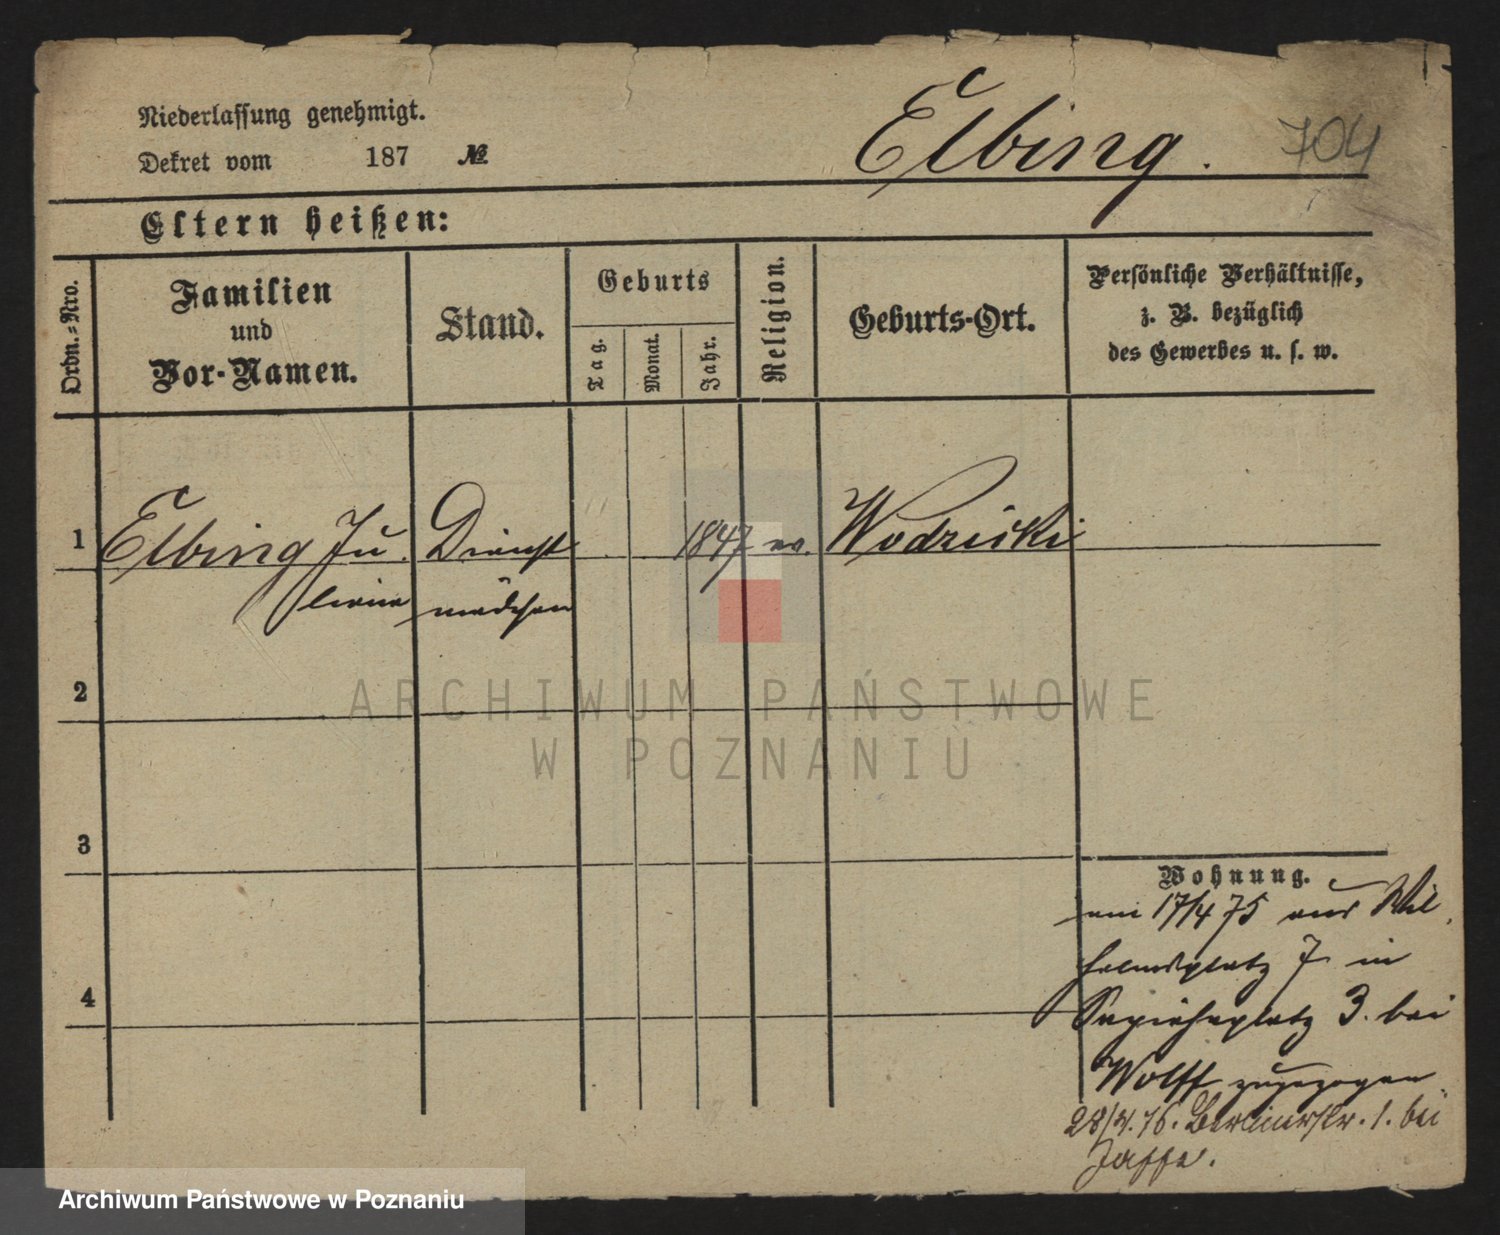 Niederlassung genehmigt.
Dekret vom 187 №
Elbing. 704
Eltern heißen:
Ordn.-Nro.
Familien
und
Vor-Namen.
Stand.
Geburts
Tag.
Monat.
Jahr.
Religion.
Geburts-Ort.
Persönliche Verhältnisse,
z. B. bezüglich
des Gewerbes u. s. w.
1 Elbing Ju Dienst 1847 ev. Wodziski
liane mädchen
2
3
4
Wohnung.
am 17/4 75 aus Wil
helmsplatz 7 in
Sapiehaplatz 3. bei
Wolff zugezogen
28/4.76. Berlinerstr. 1. bei
Jaffe.
ARCHIWUM PAŃSTWOWE
W POZNANIU
Archiwum Państwowe w Poznaniu